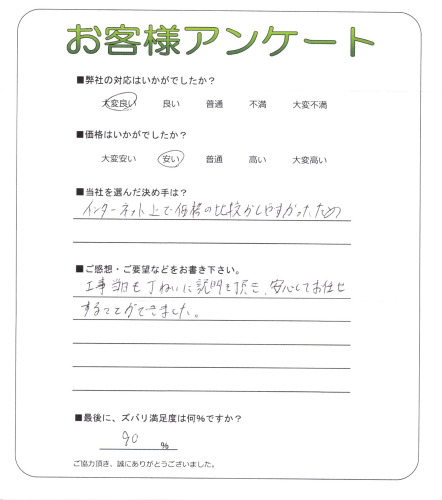 お客様アンケート
■弊社の対応はいかがでしたか？
大変良い 良い 普通 不満 大変不満
■価格はいかがでしたか？
大変安い 安い 普通 高い 大変高い
■当社を選んだ決め手は？
インターネット上で価格の比較がしやすかったため
■ご感想・ご要望などをお書き下さい。
工事当日も丁ねいに説明を頂き、安心してお任せ
することができました。
■最後に、ズバリ満足度は何％ですか？
90 ％
ご協力頂き、誠にありがとうございました。